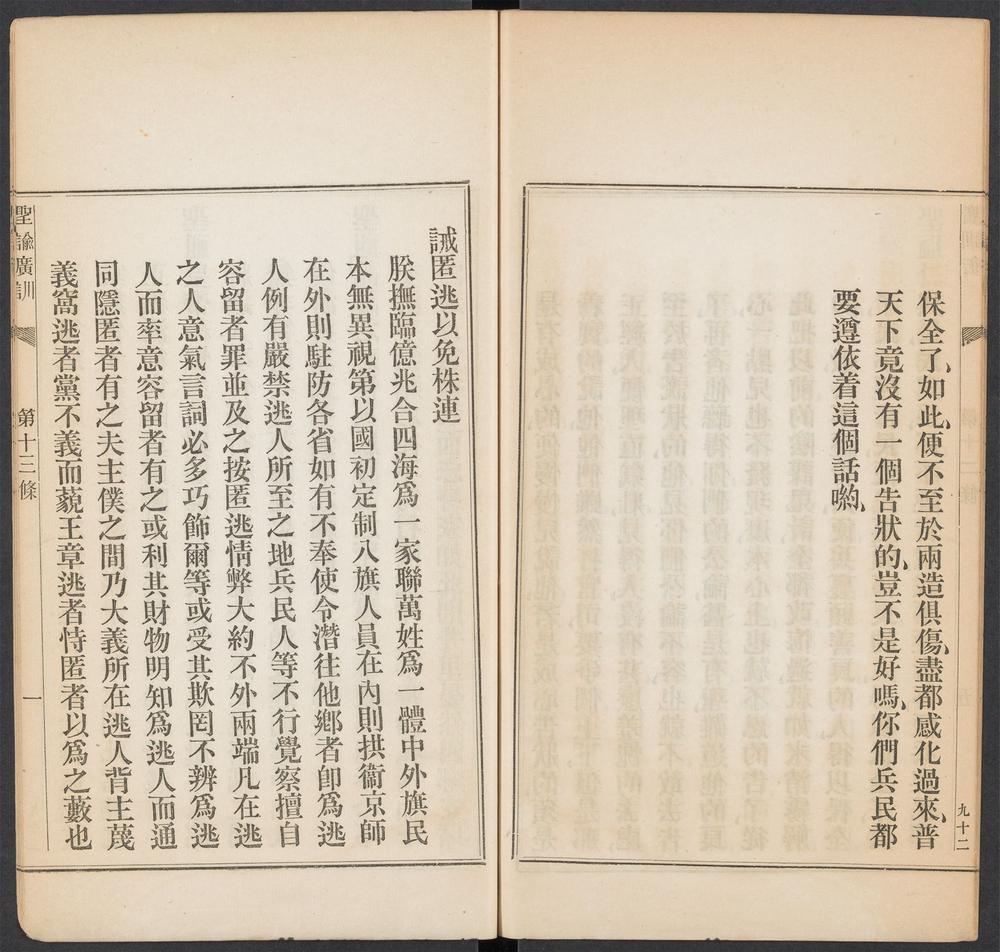 保全了、如此、便不至於兩造俱傷、盡都感化過來、普
天下竟沒有一個告狀的、豈不是好嗎、你們兵民都
要遵依着這個話喲、
九十二
誡匿逃以免株連
朕撫臨億兆合四海爲一家聯萬姓爲一體中外旗民
本無異視第以國初定制八旗人員在內則拱衞京師
在外則駐防各省如有不奉使令潛往他鄕者卽爲逃
人例有嚴禁逃人所至之地兵民人等不行覺察擅自
容留者罪並及之按匿逃情弊大約不外兩端凡在逃
之人意氣言詞必多巧飾爾等或受其欺罔不辨爲逃
人而率意容留者有之或利其財物明知爲逃人而通
同隱匿者有之夫主僕之間乃大義所在逃人背主蔑
義窩逃者黨不義而藐王章逃者恃匿者以爲之藪也
聖諭廣訓
第十三條
一